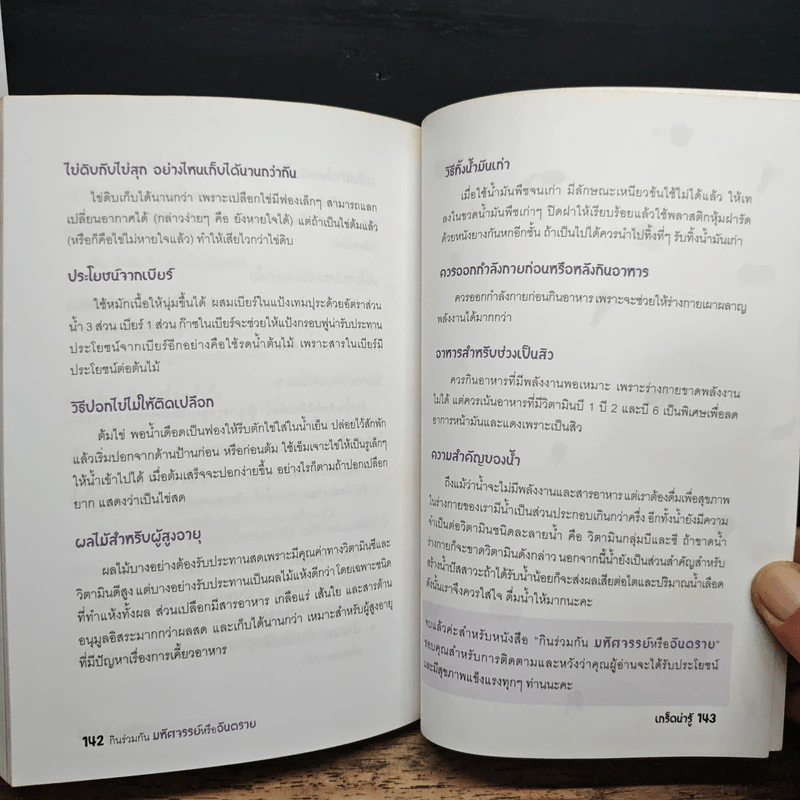 ไข่ดิบกับไข่สุก อย่างไหนเก็บได้นานกว่ากัน
ไข่ดิบเก็บได้นานกว่า เพราะเปลือกไข่มีฟองเล็กๆ สามารถแลก
เปลี่ยนอากาศได้ (กล่าวง่ายๆ คือ ยังหายใจได้) แต่ถ้าเป็นไข่ต้มแล้ว
(หรือก็คือไข่ไม่หายใจแล้ว) ทำให้เสียไวกว่าไข่ดิบ
ประโยชน์จากเบียร์
ใช้หมักเนื้อให้นุ่มขึ้นได้ ผสมเบียร์ในแป้งเทมปุระด้วยอัตราส่วน
น้ำ 3 ส่วน เบียร์ 1 ส่วน ก๊าซในเบียร์จะช่วยให้แป้งกรอบฟูน่ารับประทาน
ประโยชน์จากเบียร์อีกอย่างคือใช้รดน้ำต้นไม้ เพราะสารในเบียร์มี
ประโยชน์ต่อต้นไม้
วิธีปอกไข่ไม่ให้ติดเปลือก
ต้มไข่ พอน้ำเดือดเป็นฟองให้รีบตักไข่ใส่ในน้ำเย็น ปล่อยไว้สักพัก
แล้วเริ่มปอกจากด้านป้านก่อน หรือก่อนต้ม ใช้เข็มเจาะไข่ให้เป็นรูเล็กๆ
ให้น้ำเข้าไปได้ เมื่อต้มเสร็จจะปอกง่ายขึ้น อย่างไรก็ตามถ้าปอกเปลือก
ยาก แสดงว่าเป็นไข่สด
ผลไม้สำหรับผู้สูงอายุ
ผลไม้บางอย่างต้องรับประทานสดเพราะมีคุณค่าทางวิตามินซีและ
วิตามินดีสูง แต่บางอย่างรับประทานเป็นผลไม้แห้งดีกว่า โดยเฉพาะชนิด
ที่ทำแห้งทั้งผล ส่วนเปลือกมีสารอาหาร เกลือแร่ เส้นใย และสารต้าน
อนุมูลอิสระมากกว่าผลสด และเก็บได้นานกว่า เหมาะสำหรับผู้สูงอายุ
ที่มีปัญหาเรื่องการเคี้ยวอาหาร
142 กินร่วมกัน มหัศจรรย์หรืออันตราย
วิธีทิ้งน้ำมันเก่า
เมื่อใช้น้ำมันพืชจนเก่า มีลักษณะเหนียวข้นใช้ไม่ได้แล้ว ให้เท
ลงในขวดน้ำมันพืชเก่าๆ ปิดฝาให้เรียบร้อยแล้วใช้พลาสติกหุ้มฝารัด
ด้วยหนังยางกันหกอีกชั้น ถ้าเป็นไปได้ควรนำไปทิ้งที่ๆ รับทิ้งน้ำมันเก่า
ควรออกกำลังกายก่อนหรือหลังกินอาหาร
ควรออกกำลังกายก่อนกินอาหาร เพราะจะช่วยให้ร่างกายเผาผลาญ
พลังงานได้มากกว่า
อาหารสำหรับช่วงเป็นสิว
ควรกินอาหารที่มีพลังงานพอเหมาะ เพราะร่างกายขาดพลังงาน
ไม่ได้ แต่ควรเน้นอาหารที่มีวิตามินบี 1 บี 2 และบี 6 เป็นพิเศษเพื่อลด
อาการหน้ามันและแดงเพราะเป็นสิว
ความสำคัญของน้ำ
ถึงแม้ว่าน้ำจะไม่มีพลังงานและสารอาหาร แต่เราต้องดื่มเพื่อสุขภาพ
ในร่างกายของเรามีน้ำเป็นส่วนประกอบเกินกว่าครึ่ง อีกทั้งน้ำยังมีความ
จำเป็นต่อวิตามินชนิดละลายน้ำ คือ วิตามินกลุ่มบีและซี ถ้าขาดน้ำ
ร่างกายก็จะขาดวิตามินดังกล่าว นอกจากนี้น้ำยังเป็นส่วนสำคัญสำหรับ
สร้างน้ำปัสสาวะถ้าได้รับน้ำน้อยก็จะส่งผลเสียต่อไตและปริมาณน้ำเลือด
ดังนั้นเราจึงควรใส่ใจ ดื่มน้ำให้มากนะคะ
จบแล้วค่ะสำหรับหนังสือ "กินร่วมกัน มหัศจรรย์หรืออันตราย"
ขอบคุณสำหรับการติดตามและหวังว่าคุณผู้อ่านจะได้รับประโยชน์
และมีสุขภาพแข็งแรงทุกๆ ท่านนะคะ
เกร็ดน่ารู้ 143